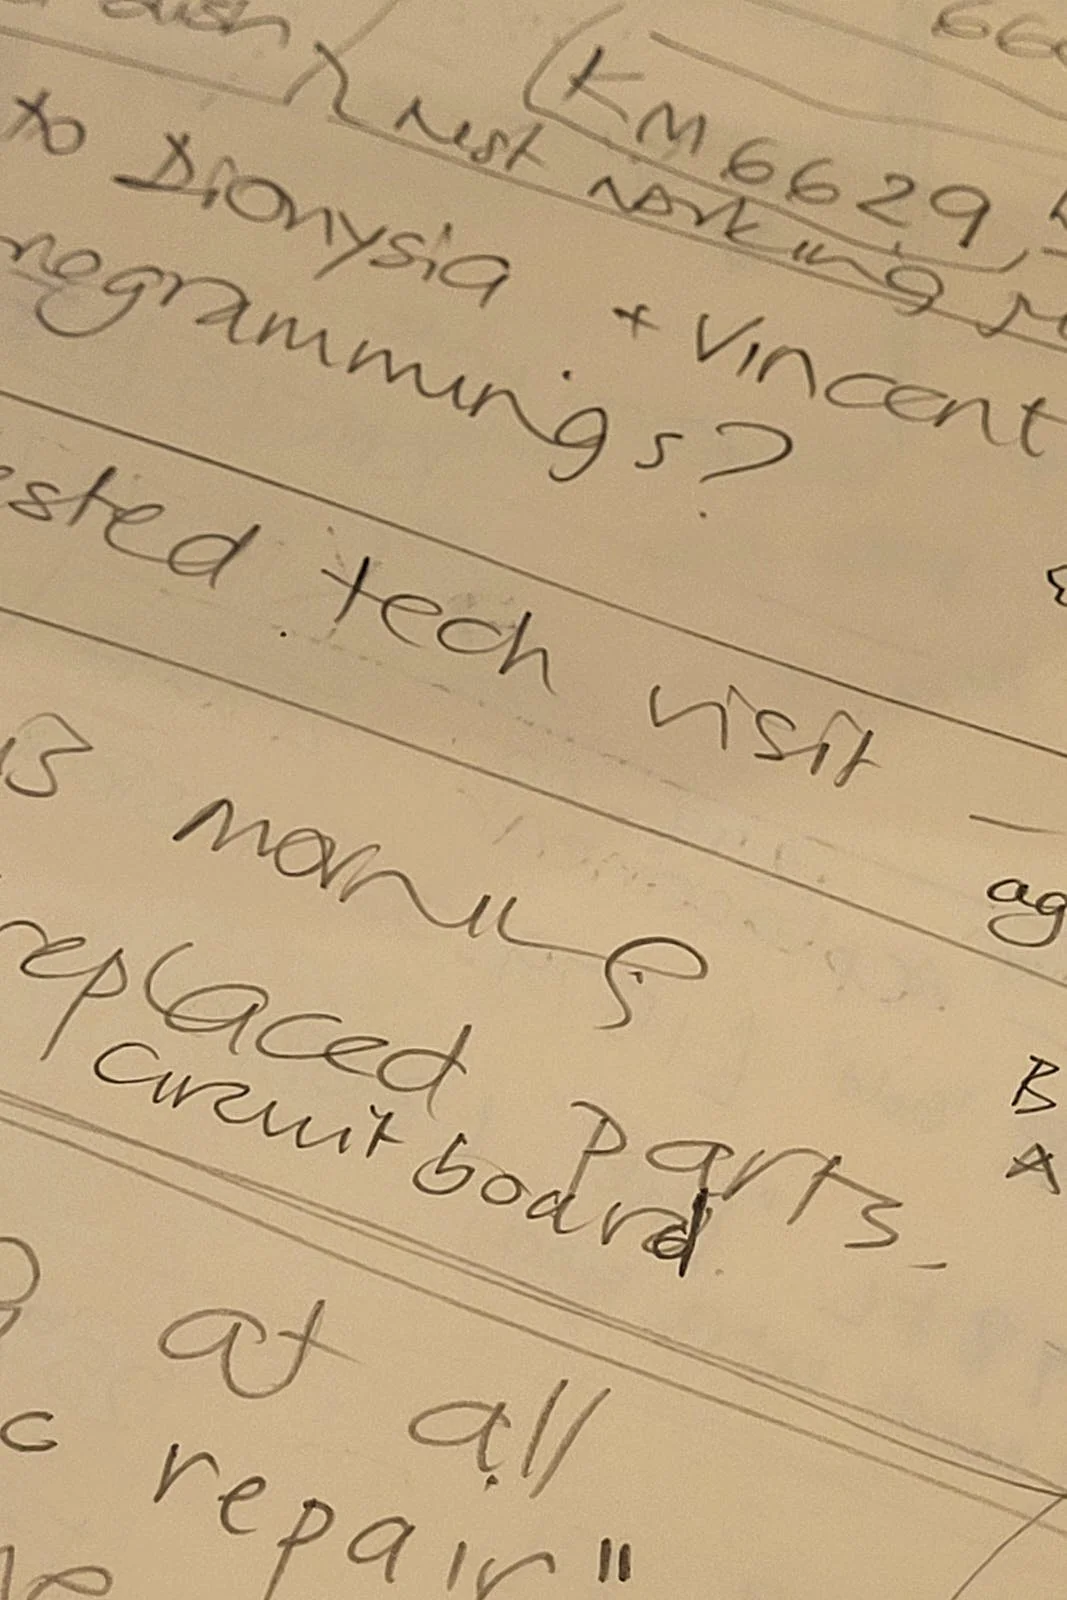 (KM6629,
rest working
to Dionysia + Vincent
rogrammings?
ested tech visit
ag
B
replaced parts
A
circuit board
at all
c repair"